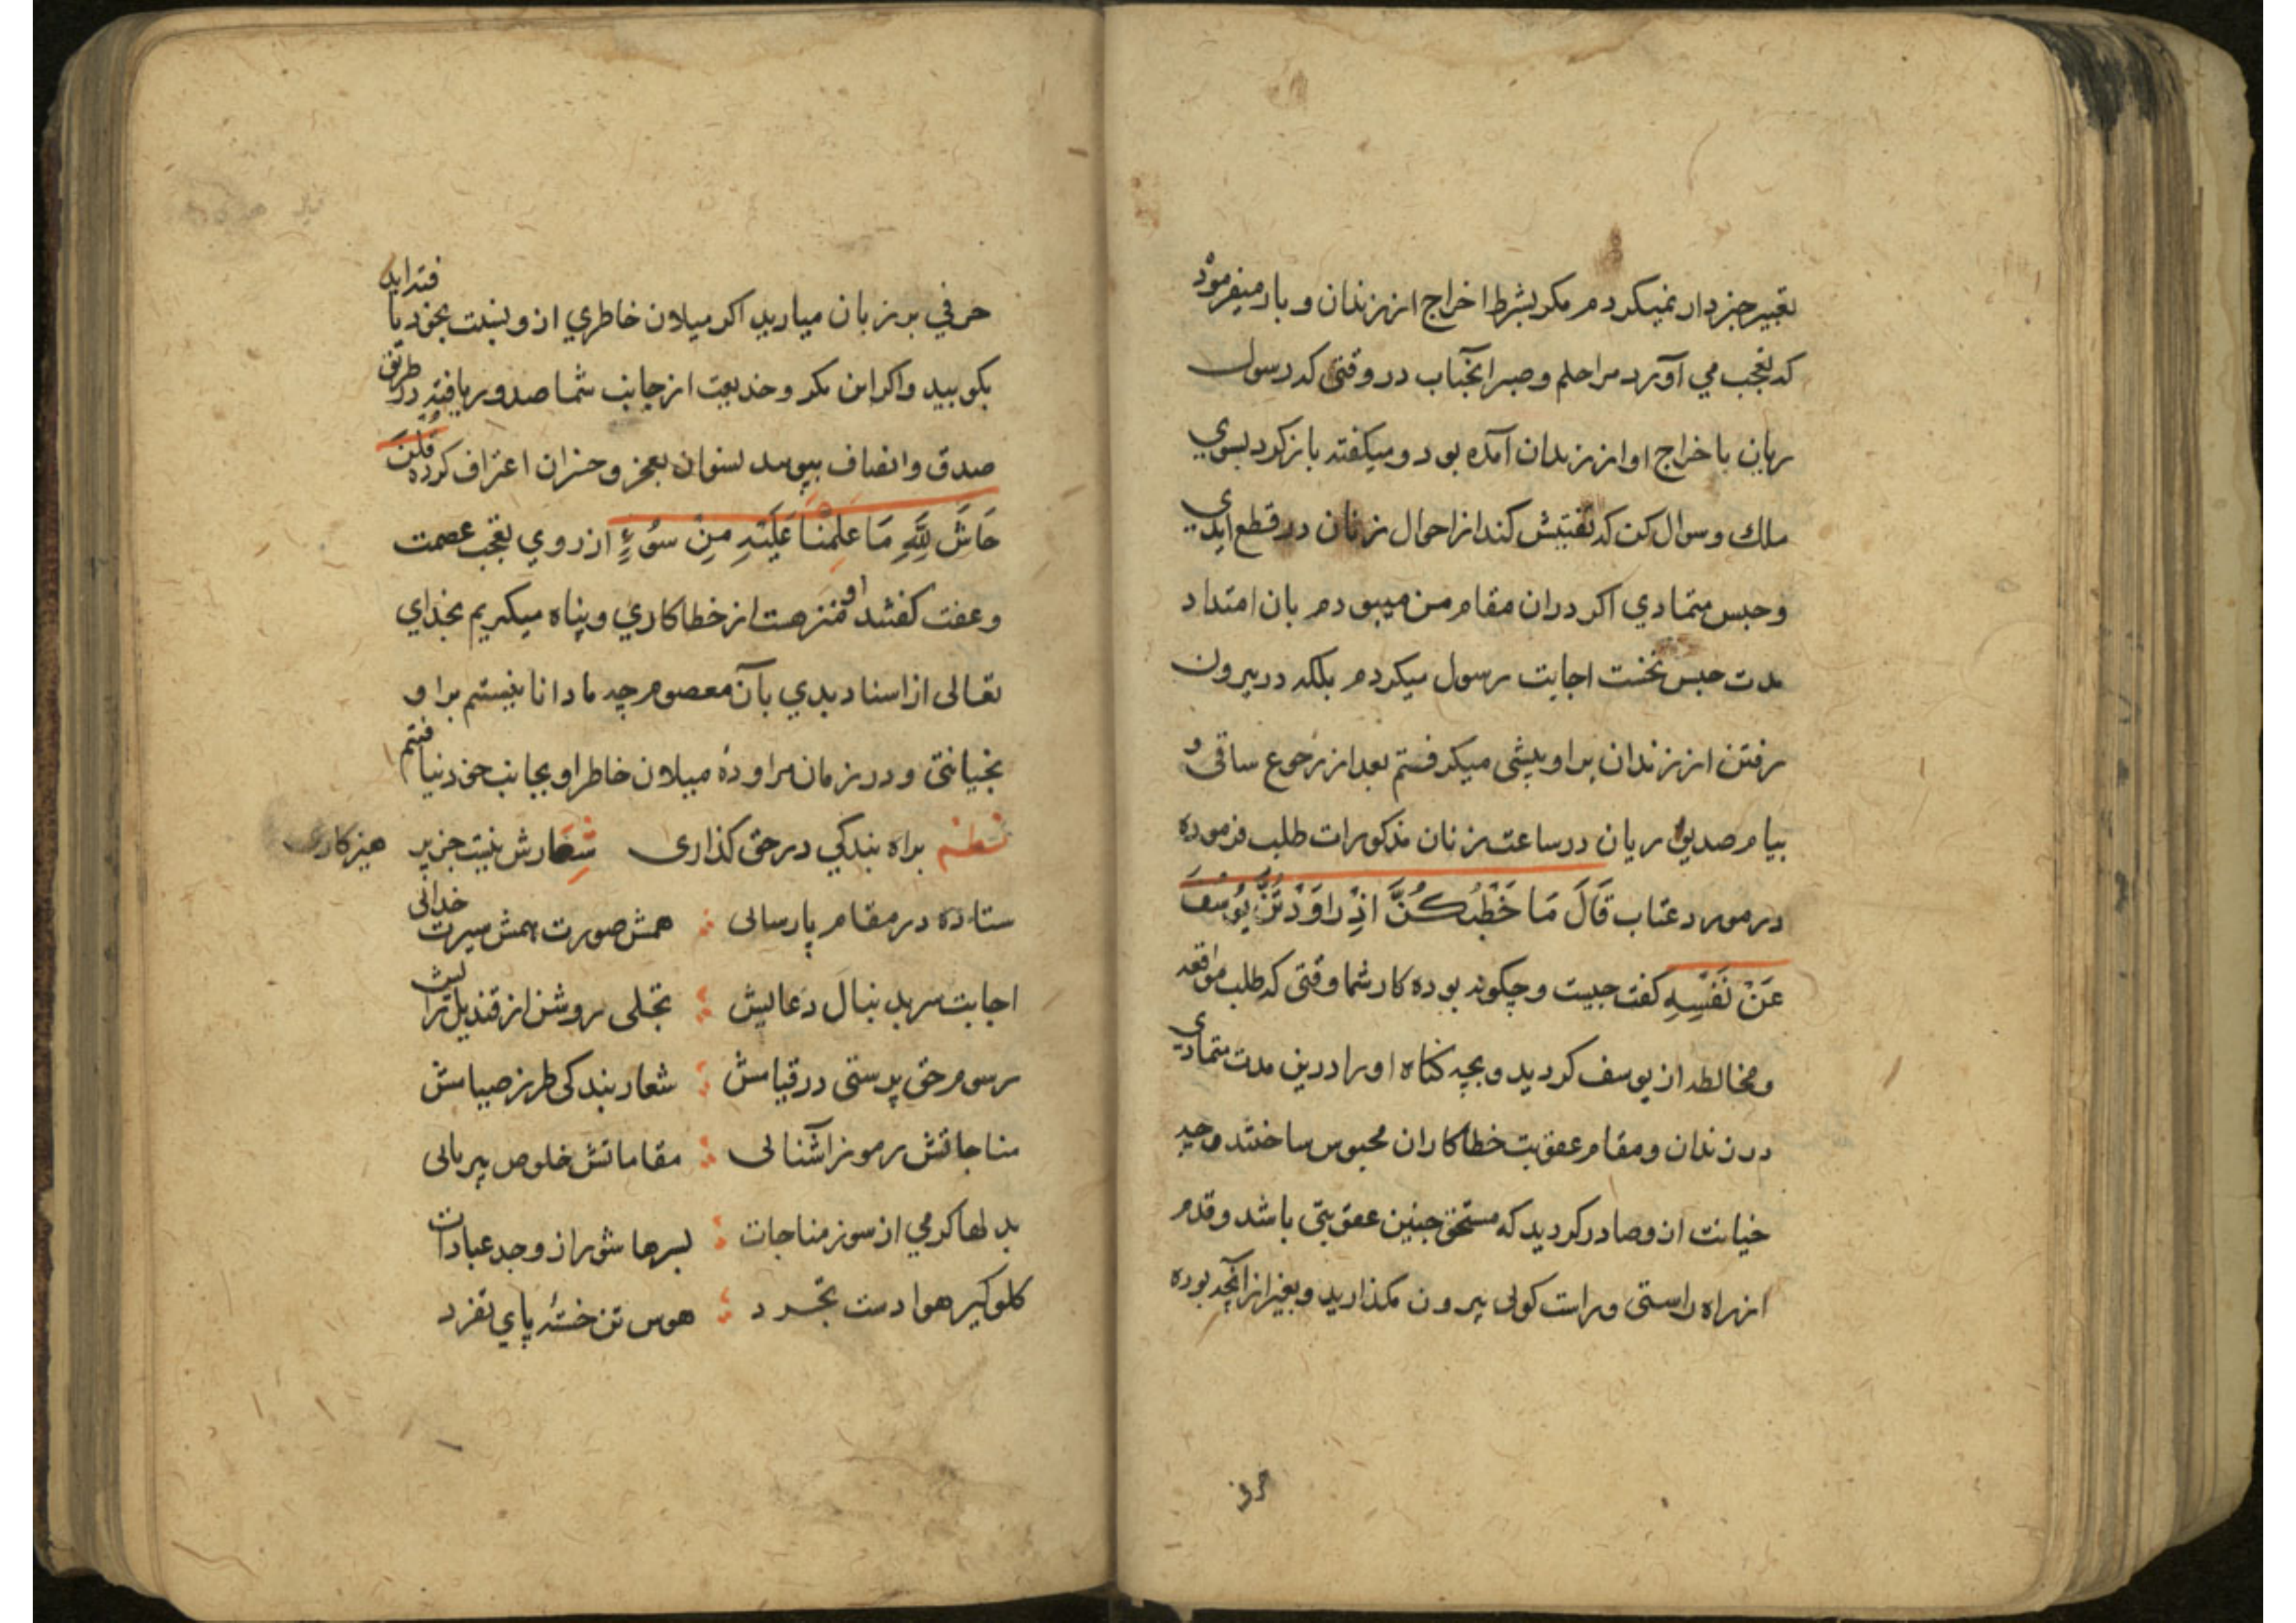 تعبیر جز دار نمیکردم مکر بشرط اخراج از زندان و بار میفرمود
که تعجب می آورد مرا حلم و صبر آنجناب در وقتی که رسول
ریان باخراج او از زندان آمده بود و میکفته بازکرد بسوی
ملك و سوال کن که تفتیش کند از احوال زنان در قطع ایدی
و حبس متمادی اکر دران مقام من میبودم بان امتداد
مدت حبس نخست اجابت رسول میکردم بلکه در بیرون
رفتن از زندان براو پیشی میکرفتم بعد از رجوع ساقی و
پیام صدیق ریان در ساعت زنان مذکورات طلب فرموده
در مورد عتاب قَالَ مَا خَطْبُكُنَّ اِذْ رَاوَدْتُنَّ یُوسُفَ
عَنْ نَفْسِهِ کفت چیست و چکونه بوده کار شما وقتی که طلب مواقعه
و مخالطه از یوسف کردید و بچه کناه او را درین مدت متمادی
در زندان و مقام عقوبت خطاکاران محبوس ساختند و چه
خیانت ازو صادر کردید که مستحق چنین عقوبتی باشد و قدم
از راه راستی و راست کوئی بیرون مکذارید و بغیر از آنچه بوده
حرفی
حرفی بر زبان میارید اکر میلان خاطری ازو بنسبت بخود یافته اید
بکویید و اکر این مکر و خدیعت از جانب شما صدور یافته در طریق
صدق و انصاف بپویید نسوان بعجز و خسران اعتراف کرده قُلْنَ
حَاشَ لِلَّهِ مَا عَلِمْنَا عَلَیْهِ مِنْ سُوءٍ از روی تعجب عصمت
و عفت کفتند او منزهست از خطاکاری و پناه میکیریم بخدای
تعالی از اسناد بدی بآن معصوم چه ما دانا نیستیم براو
بخیانتی و در زمان مراوده میلان خاطر او بجانب خود نیافتیم
نظم براه بندکی در حق کذاری شعارش نیت جز پرهیزکاری
ستاده در مقام پارسائی همش صورت همش سیرت خدائی
اجابت سر بدنبال دعایش تجلی روشن از قندیل رایش
رسوم حق پرستی در قیامش شعار بندکی طرز صیامش
مناجاتش رموز آشنائی مقاماتش خلوص بیریائی
بدلها کرمی از سوز مناجات بسرها شور از وجد عبادات
کلوکیر هوا دست تجرد هوس تن خستهٔ پای تفرد